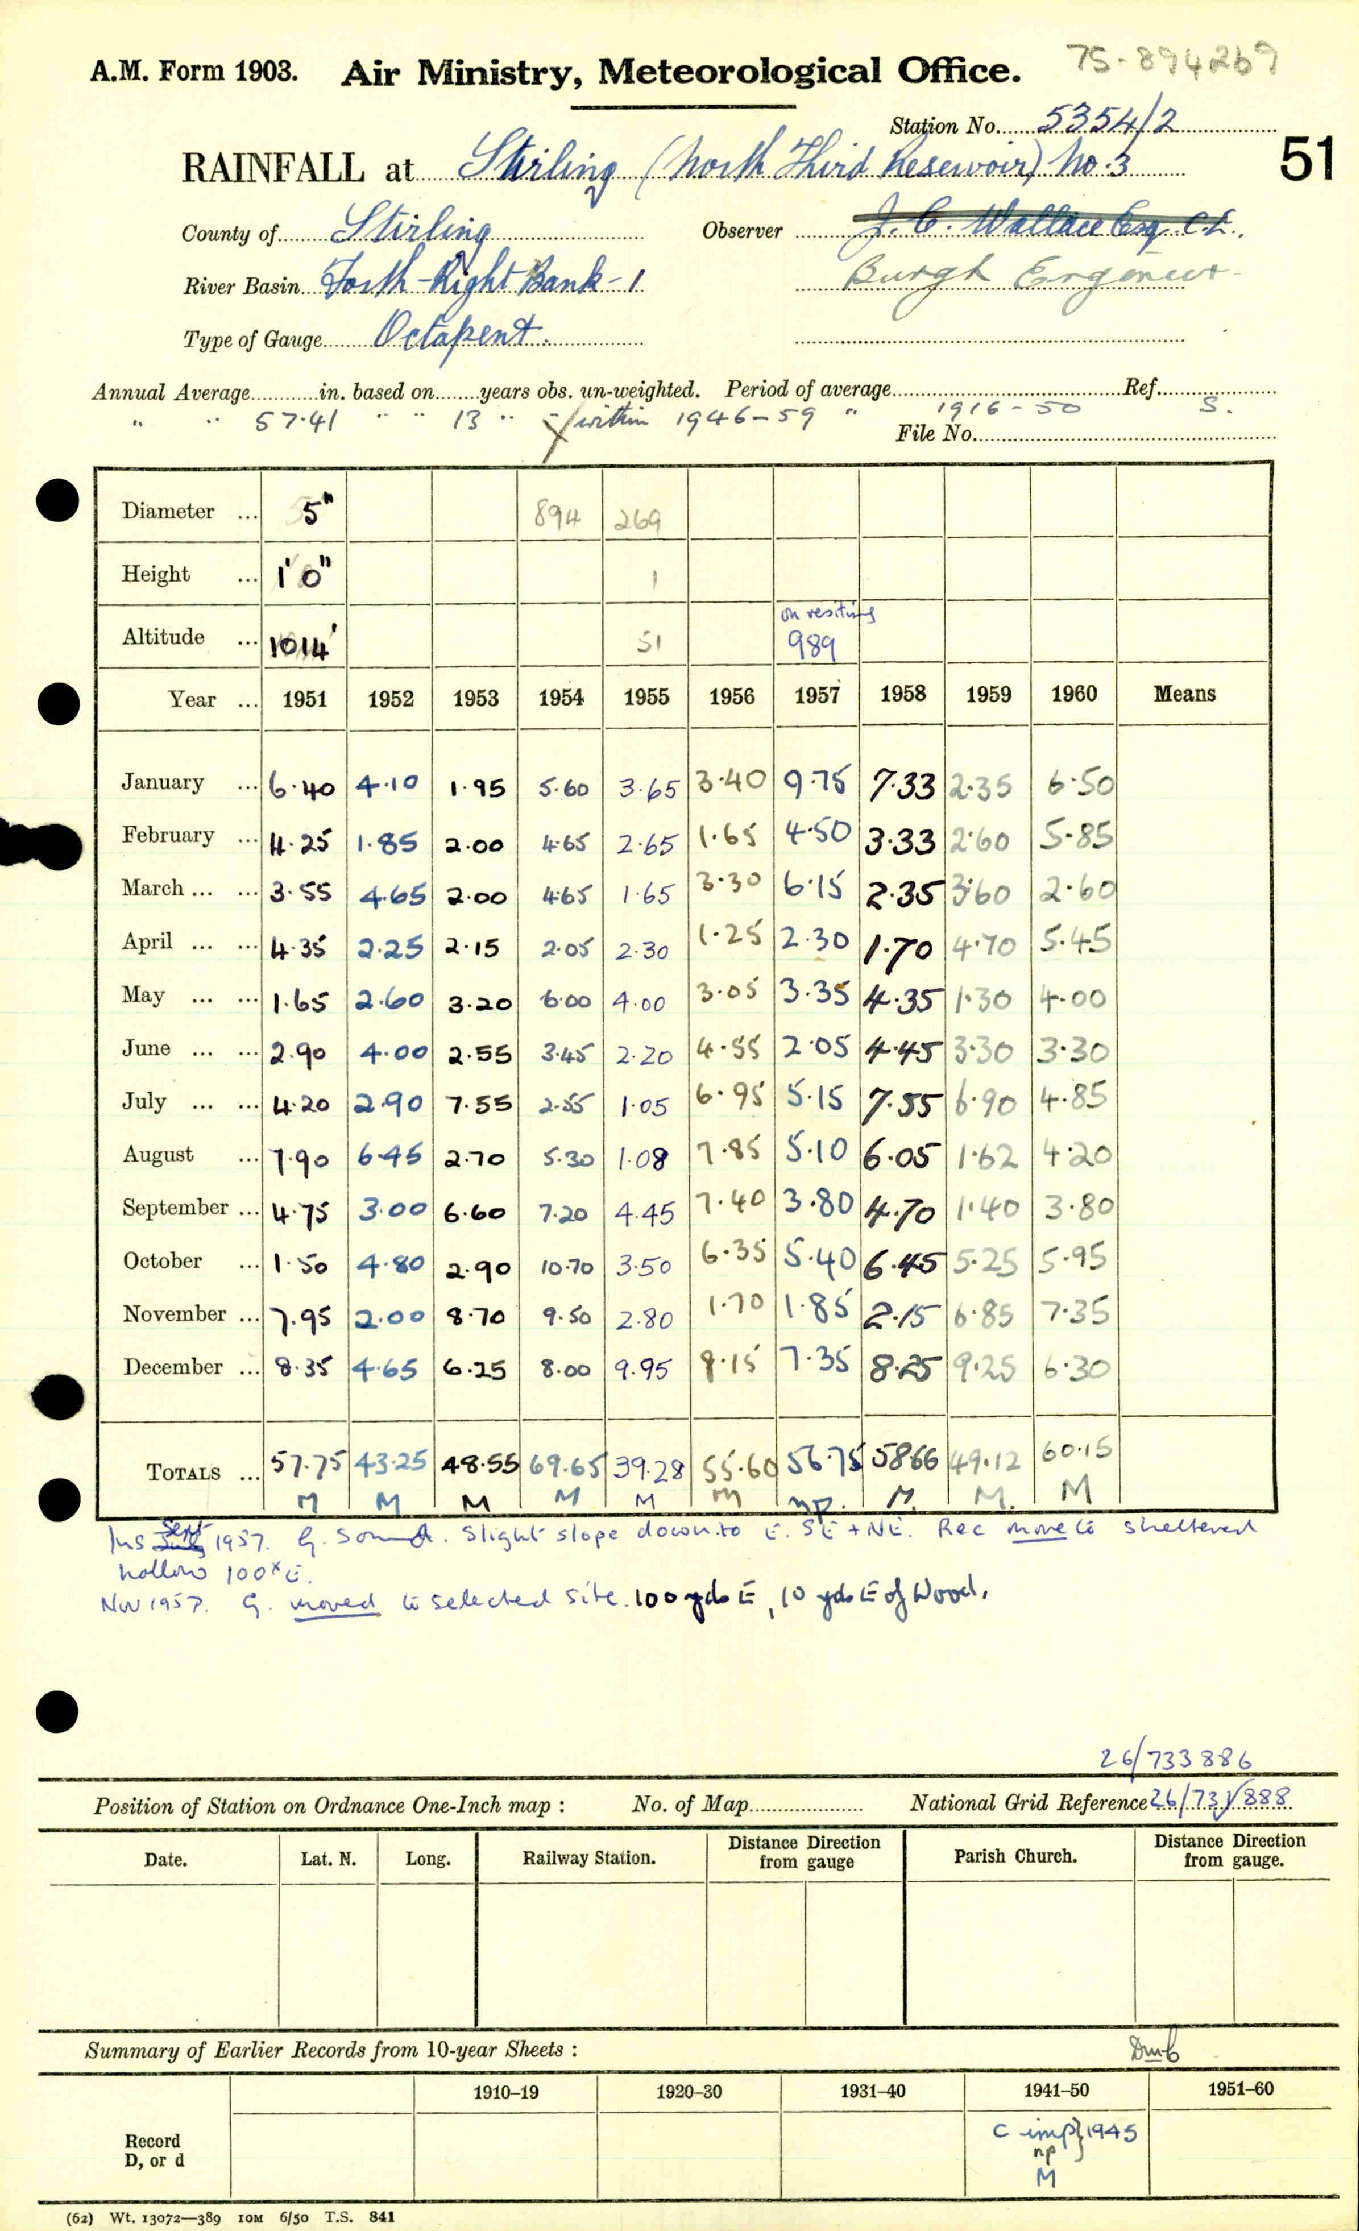 75-894269
A.M. Form 1903. Air Ministry, Meteorological Office.
Station No. 5354/2
51
RAINFALL at Stirling (North Third Reservoir) No 3
County of Stirling Observer J. C. Wallace Esq C.E.
River Basin Forth-Right Bank-1 Burgh Engineer
Type of Gauge Octapent.
Annual Average in. based on years obs. un-weighted. Period of average Ref.
" " 57.41 " " 13 " - within 1946-59 " 1916-50 S.
File No.
Diameter ... 5" 894 269
Height ... 1'0" 1
on resiting
Altitude ... 1014' 51 989
Year ... 1951 1952 1953 1954 1955 1956 1957 1958 1959 1960 Means
January ... 6.40 4.10 1.95 5.60 3.65 3.40 9.75 7.33 2.35 6.50
February ... 4.25 1.85 2.00 4.65 2.65 1.65 4.50 3.33 2.60 5.85
March ... ... 3.55 4.65 2.00 4.65 1.65 3.30 6.15 2.35 3.60 2.60
April ... ... 4.35 2.25 2.15 2.05 2.30 1.25 2.30 1.70 4.70 5.45
May ... ... 1.65 2.60 3.20 6.00 4.00 3.05 3.35 4.35 1.30 4.00
June ... ... 2.90 4.00 2.55 3.45 2.20 4.55 2.05 4.45 3.30 3.30
July ... ... 4.20 2.90 7.55 2.55 1.05 6.95 5.15 7.55 6.90 4.85
August ... 7.90 6.45 2.70 5.30 1.08 7.85 5.10 6.05 1.62 4.20
September ... 4.75 3.00 6.60 7.20 4.45 7.40 3.80 4.70 1.40 3.80
October ... 1.50 4.80 2.90 10.70 3.50 6.35 5.40 6.45 5.25 5.95
November ... 7.95 2.00 8.70 9.50 2.80 1.70 1.85 2.15 6.85 7.35
December ... 8.35 4.65 6.25 8.00 9.95 8.15 7.35 8.25 9.25 6.30
TOTALS ... 57.75 43.25 48.55 69.65 39.28 55.60 56.75 58.66 49.12 60.15
M M M M M M np. M. M. M
Ins Sept 1957. G. Sound. Slight slope down to E. SE + NE. Rec move to sheltered
hollow 100x E.
Nov 1957. G. moved to selected site. 100 yds E, 10 yds E of Wood.
26/733886
Position of Station on Ordnance One-Inch map : No. of Map National Grid Reference 26/731/888
Date. Lat. N. Long. Railway Station. Distance Direction from gauge Parish Church. Distance Direction from gauge.
Summary of Earlier Records from 10-year Sheets :
1910–19 1920–30 1931–40 1941–50 1951–60
Record
D, or d
C imp} 1945
np
M
(62) Wt. 13072—389 10M 6/50 T.S. 841